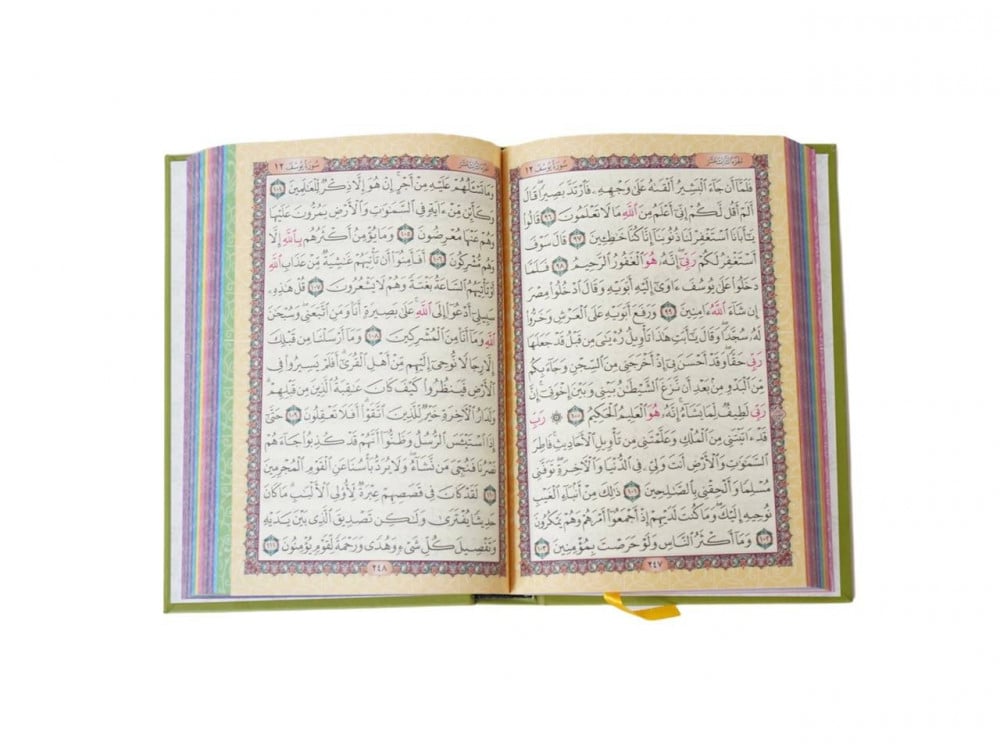 الجزء الثالث عشر سورة يوسف ١٢
فَلَمَّآ أَن جَآءَ ٱلْبَشِيرُ أَلْقَىٰهُ عَلَىٰ وَجْهِهِۦ فَٱرْتَدَّ بَصِيرًا ۖ قَالَ
أَلَمْ أَقُل لَّكُمْ إِنِّىٓ أَعْلَمُ مِنَ ٱللَّهِ مَا لَا تَعْلَمُونَ ٩٦ قَالُوا۟
يَـٰٓأَبَانَا ٱسْتَغْفِرْ لَنَا ذُنُوبَنَآ إِنَّا كُنَّا خَـٰطِـِٔينَ ٩٧ قَالَ سَوْفَ
أَسْتَغْفِرُ لَكُمْ رَبِّىٓ ۖ إِنَّهُۥ هُوَ ٱلْغَفُورُ ٱلرَّحِيمُ ٩٨ فَلَمَّا
دَخَلُوا۟ عَلَىٰ يُوسُفَ ءَاوَىٰٓ إِلَيْهِ أَبَوَيْهِ وَقَالَ ٱدْخُلُوا۟ مِصْرَ
إِن شَآءَ ٱللَّهُ ءَامِنِينَ ٩٩ وَرَفَعَ أَبَوَيْهِ عَلَى ٱلْعَرْشِ وَخَرُّوا۟
لَهُۥ سُجَّدًا ۖ وَقَالَ يَـٰٓأَبَتِ هَـٰذَا تَأْوِيلُ رُءْيَـٰىَ مِن قَبْلُ قَدْ جَعَلَهَا
رَبِّى حَقًّا ۖ وَقَدْ أَحْسَنَ بِىٓ إِذْ أَخْرَجَنِى مِنَ ٱلسِّجْنِ وَجَآءَ بِكُم
مِّنَ ٱلْبَدْوِ مِنۢ بَعْدِ أَن نَّزَغَ ٱلشَّيْطَـٰنُ بَيْنِى وَبَيْنَ إِخْوَتِىٓ ۚ إِنَّ
رَبِّى لَطِيفٌ لِّمَا يَشَآءُ ۚ إِنَّهُۥ هُوَ ٱلْعَلِيمُ ٱلْحَكِيمُ ١٠٠ ۞ رَبِّ
قَدْ ءَاتَيْتَنِى مِنَ ٱلْمُلْكِ وَعَلَّمْتَنِى مِن تَأْوِيلِ ٱلْأَحَادِيثِ ۚ فَاطِرَ
ٱلسَّمَـٰوَٰتِ وَٱلْأَرْضِ أَنتَ وَلِىِّۦ فِى ٱلدُّنْيَا وَٱلْـَٔاخِرَةِ ۖ تَوَفَّنِى
مُسْلِمًا وَأَلْحِقْنِى بِٱلصَّـٰلِحِينَ ١٠١ ذَٰلِكَ مِنْ أَنۢبَآءِ ٱلْغَيْبِ
نُوحِيهِ إِلَيْكَ ۖ وَمَا كُنتَ لَدَيْهِمْ إِذْ أَجْمَعُوٓا۟ أَمْرَهُمْ وَهُمْ يَمْكُرُونَ
١٠٢ وَمَآ أَكْثَرُ ٱلنَّاسِ وَلَوْ حَرَصْتَ بِمُؤْمِنِينَ ١٠٣
٢٤٧
الجزء الثالث عشر سورة يوسف ١٢
وَمَا تَسْـَٔلُهُمْ عَلَيْهِ مِنْ أَجْرٍ ۚ إِنْ هُوَ إِلَّا ذِكْرٌ لِّلْعَـٰلَمِينَ ١٠٤
وَكَأَيِّن مِّنْ ءَايَةٍ فِى ٱلسَّمَـٰوَٰتِ وَٱلْأَرْضِ يَمُرُّونَ عَلَيْهَا
وَهُمْ عَنْهَا مُعْرِضُونَ ١٠٥ وَمَا يُؤْمِنُ أَكْثَرُهُم بِٱللَّهِ إِلَّا
وَهُم مُّشْرِكُونَ ١٠٦ أَفَأَمِنُوٓا۟ أَن تَأْتِيَهُمْ غَـٰشِيَةٌ مِّنْ عَذَابِ ٱللَّهِ
أَوْ تَأْتِيَهُمُ ٱلسَّاعَةُ بَغْتَةً وَهُمْ لَا يَشْعُرُونَ ١٠٧ قُلْ هَـٰذِهِۦ
سَبِيلِىٓ أَدْعُوٓا۟ إِلَى ٱللَّهِ ۚ عَلَىٰ بَصِيرَةٍ أَنَا۠ وَمَنِ ٱتَّبَعَنِى ۖ وَسُبْحَـٰنَ
ٱللَّهِ وَمَآ أَنَا۠ مِنَ ٱلْمُشْرِكِينَ ١٠٨ وَمَآ أَرْسَلْنَا مِن قَبْلِكَ
إِلَّا رِجَالًا نُّوحِىٓ إِلَيْهِم مِّنْ أَهْلِ ٱلْقُرَىٰٓ ۗ أَفَلَمْ يَسِيرُوا۟ فِى
ٱلْأَرْضِ فَيَنظُرُوا۟ كَيْفَ كَانَ عَـٰقِبَةُ ٱلَّذِينَ مِن قَبْلِهِمْ ۗ
وَلَدَارُ ٱلْـَٔاخِرَةِ خَيْرٌ لِّلَّذِينَ ٱتَّقَوْا۟ ۗ أَفَلَا تَعْقِلُونَ ١٠٩ حَتَّىٰٓ
إِذَا ٱسْتَيْـَٔسَ ٱلرُّسُلُ وَظَنُّوٓا۟ أَنَّهُمْ قَدْ كُذِبُوا۟ جَآءَهُمْ
نَصْرُنَا فَنُجِّىَ مَن نَّشَآءُ ۖ وَلَا يُرَدُّ بَأْسُنَا عَنِ ٱلْقَوْمِ ٱلْمُجْرِمِينَ
١١٠ لَقَدْ كَانَ فِى قَصَصِهِمْ عِبْرَةٌ لِّأُو۟لِى ٱلْأَلْبَـٰبِ ۗ مَا كَانَ
حَدِيثًا يُفْتَرَىٰ وَلَـٰكِن تَصْدِيقَ ٱلَّذِى بَيْنَ يَدَيْهِ
وَتَفْصِيلَ كُلِّ شَىْءٍ وَهُدًى وَرَحْمَةً لِّقَوْمٍ يُؤْمِنُونَ ١١١
٢٤٨